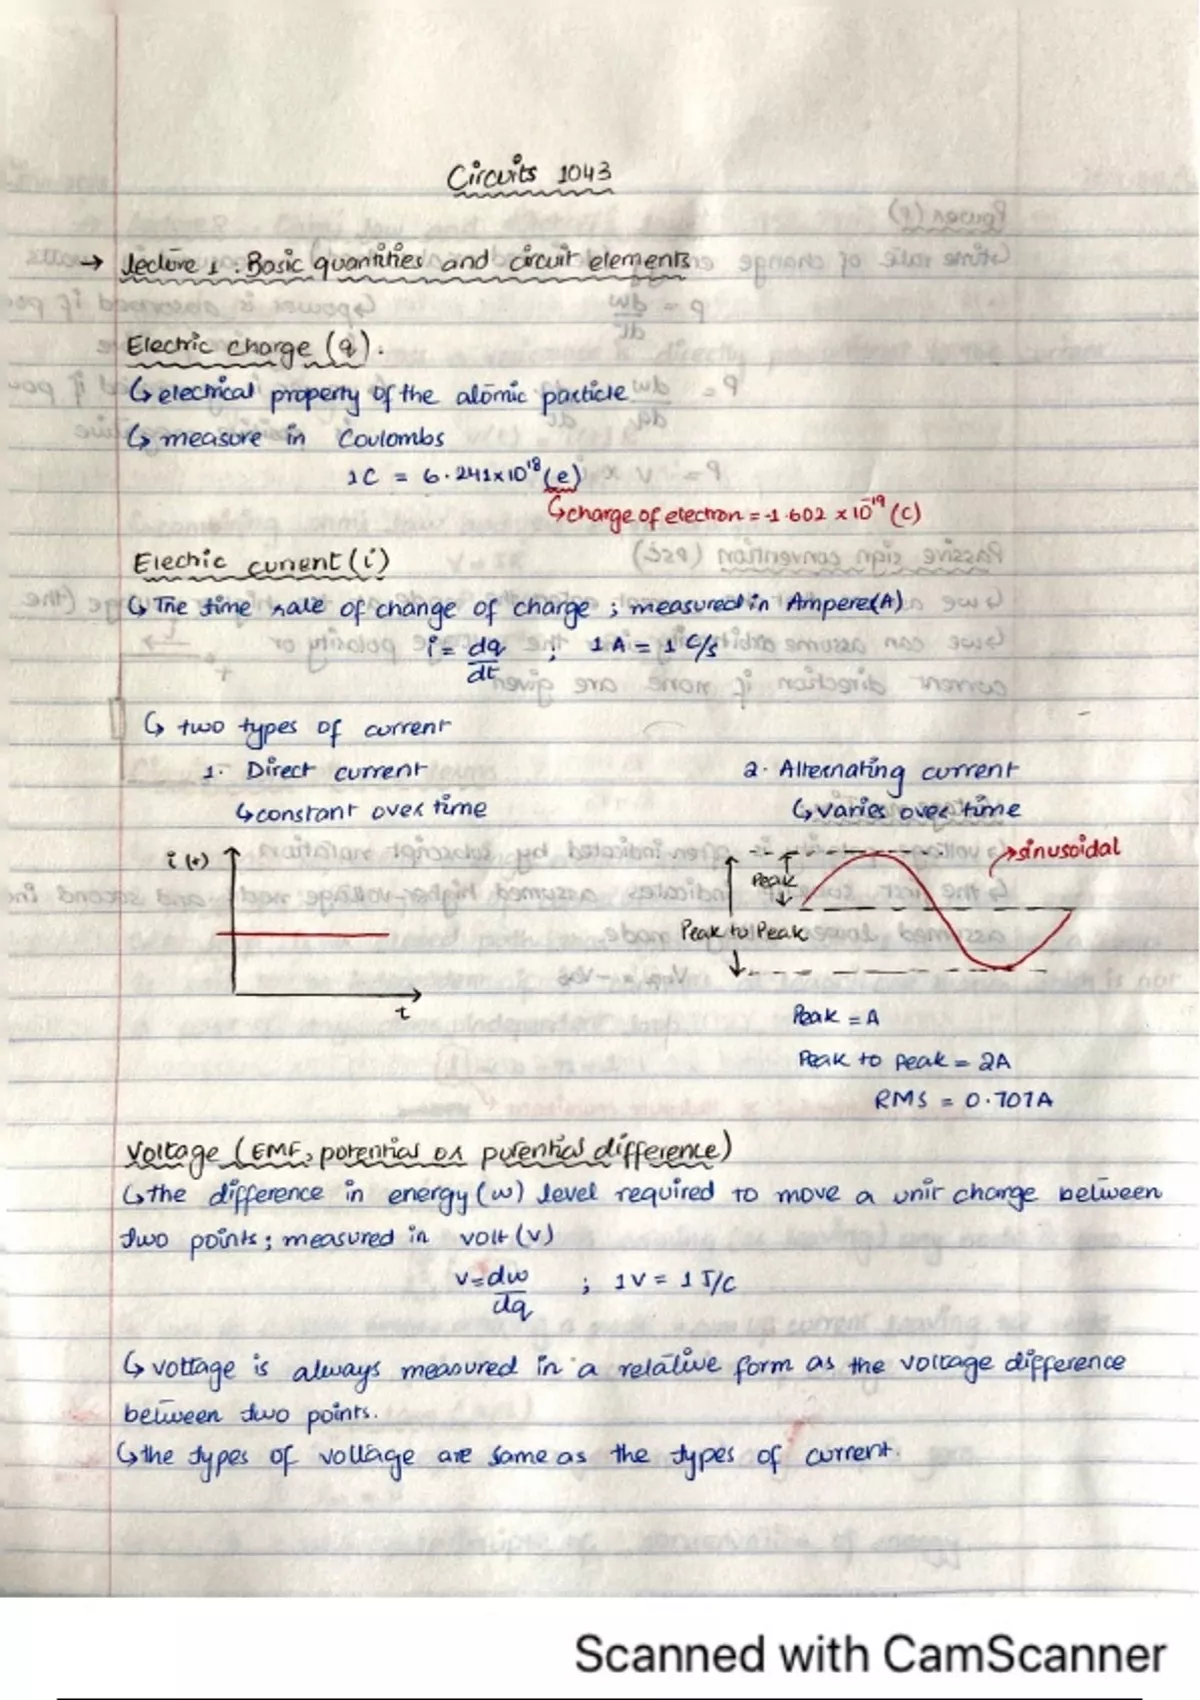 Circuits 1043
→ lecture 1 : Basic quantities and circuit elements
Electric charge (q).
↳ electrical property of the atomic particle
↳ measure in Coulombs
1C = 6.241x10¹⁸ (e)
↳ charge of electron = -1.602 x 10⁻¹⁹ (C)
Electric current (i)
↳ The time rate of change of charge ; measured in Ampere(A)
i = dq/dt ; 1 A = 1 C/s
↳ two types of current
1. Direct current
↳ constant over time
i(t)
t
2. Alternating current
↳ varies over time
→ sinusoidal
Peak
Peak to Peak
Peak = A
Peak to peak = 2A
RMS = 0.707A
Voltage (EMF, potential or potential difference)
↳ the difference in energy (w) level required to move a unit charge between
two points ; measured in volt (v)
v = dw/dq ; 1V = 1 J/C
↳ voltage is always measured in a relative form as the voltage difference
between two points.
↳ the types of voltage are same as the types of current.
Scanned with CamScanner